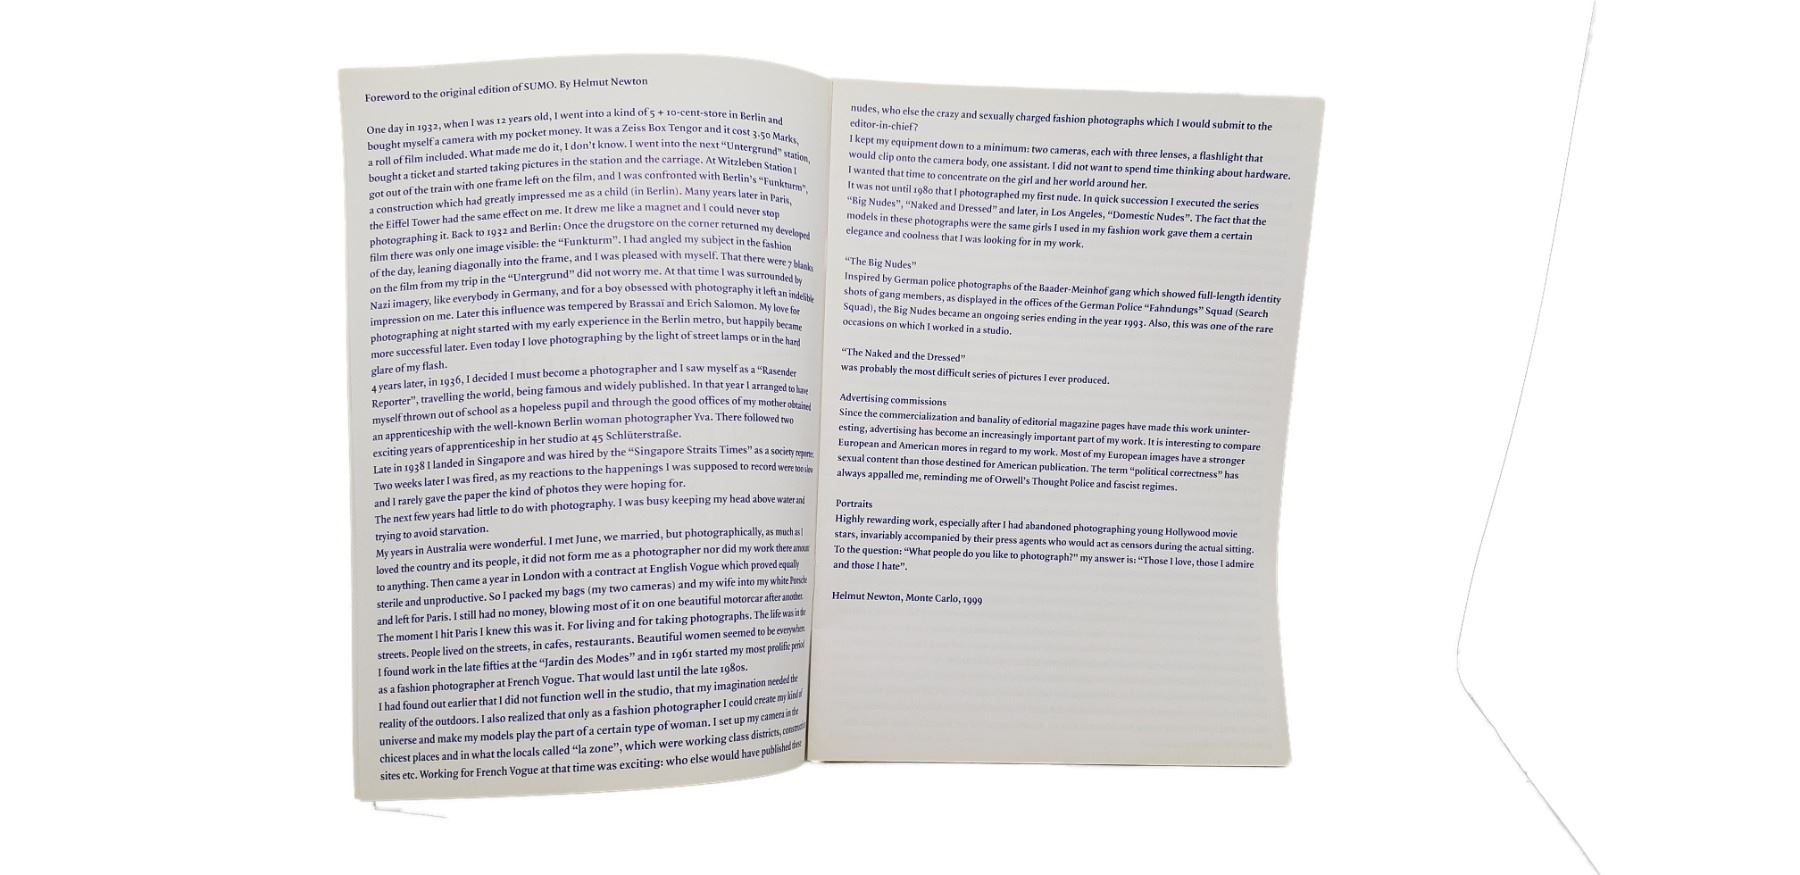 Foreword to the original edition of SUMO. By Helmut Newton
One day in 1932, when I was 12 years old, I went into a kind of 5 + 10-cent-store in Berlin and
bought myself a camera with my pocket money. It was a Zeiss Box Tengor and it cost 3.50 Marks,
a roll of film included. What made me do it, I don't know. I went into the next “Untergrund” station,
bought a ticket and started taking pictures in the station and the carriage. At Witzleben Station I
got out of the train with one frame left on the film, and I was confronted with Berlin's “Funkturm”,
a construction which had greatly impressed me as a child (in Berlin). Many years later in Paris,
the Eiffel Tower had the same effect on me. It drew me like a magnet and I could never stop
photographing it. Back to 1932 and Berlin: Once the drugstore on the corner returned my developed
film there was only one image visible: the “Funkturm”. I had angled my subject in the fashion
of the day, leaning diagonally into the frame, and I was pleased with myself. That there were 7 blanks
on the film from my trip in the “Untergrund” did not worry me. At that time I was surrounded by
Nazi imagery, like everybody in Germany, and for a boy obsessed with photography it left an indelible
impression on me. Later this influence was tempered by Brassaï and Erich Salomon. My love for
photographing at night started with my early experience in the Berlin metro, but happily became
more successful later. Even today I love photographing by the light of street lamps or in the hard
glare of my flash.
4 years later, in 1936, I decided I must become a photographer and I saw myself as a “Rasender
Reporter”, travelling the world, being famous and widely published. In that year I arranged to have
myself thrown out of school as a hopeless pupil and through the good offices of my mother obtained
an apprenticeship with the well-known Berlin woman photographer Yva. There followed two
exciting years of apprenticeship in her studio at 45 Schlüterstraße.
Late in 1938 I landed in Singapore and was hired by the “Singapore Straits Times” as a society reporter.
Two weeks later I was fired, as my reactions to the happenings I was supposed to record were too slow
and I rarely gave the paper the kind of photos they were hoping for.
The next few years had little to do with photography. I was busy keeping my head above water and
trying to avoid starvation.
My years in Australia were wonderful. I met June, we married, but photographically, as much as I
loved the country and its people, it did not form me as a photographer nor did my work there amount
to anything. Then came a year in London with a contract at English Vogue which proved equally
sterile and unproductive. So I packed my bags (my two cameras) and my wife into my white Porsche
and left for Paris. I still had no money, blowing most of it on one beautiful motorcar after another.
The moment I hit Paris I knew this was it. For living and for taking photographs. The life was in the
streets. People lived on the streets, in cafes, restaurants. Beautiful women seemed to be everywhere.
I found work in the late fifties at the “Jardin des Modes” and in 1961 started my most prolific period
as a fashion photographer at French Vogue. That would last until the late 1980s.
I had found out earlier that I did not function well in the studio, that my imagination needed the
reality of the outdoors. I also realized that only as a fashion photographer I could create my kind of
universe and make my models play the part of a certain type of woman. I set up my camera in the
chicest places and in what the locals called “la zone”, which were working class districts, construction
sites etc. Working for French Vogue at that time was exciting: who else would have published these
nudes, who else the crazy and sexually charged fashion photographs which I would submit to the
editor-in-chief?
I kept my equipment down to a minimum: two cameras, each with three lenses, a flashlight that
would clip onto the camera body, one assistant. I did not want to spend time thinking about hardware.
I wanted that time to concentrate on the girl and her world around her.
It was not until 1980 that I photographed my first nude. In quick succession I executed the series
“Big Nudes”, “Naked and Dressed” and later, in Los Angeles, “Domestic Nudes”. The fact that the
models in these photographs were the same girls I used in my fashion work gave them a certain
elegance and coolness that I was looking for in my work.
“The Big Nudes”
Inspired by German police photographs of the Baader-Meinhof gang which showed full-length identity
shots of gang members, as displayed in the offices of the German Police “Fahndungs” Squad (Search
Squad), the Big Nudes became an ongoing series ending in the year 1993. Also, this was one of the rare
occasions on which I worked in a studio.
“The Naked and the Dressed”
was probably the most difficult series of pictures I ever produced.
Advertising commissions
Since the commercialization and banality of editorial magazine pages have made this work uninter-
esting, advertising has become an increasingly important part of my work. It is interesting to compare
European and American mores in regard to my work. Most of my European images have a stronger
sexual content than those destined for American publication. The term “political correctness” has
always appalled me, reminding me of Orwell's Thought Police and fascist regimes.
Portraits
Highly rewarding work, especially after I had abandoned photographing young Hollywood movie
stars, invariably accompanied by their press agents who would act as censors during the actual sitting.
To the question: “What people do you like to photograph?” my answer is: “Those I love, those I admire
and those I hate”.
Helmut Newton, Monte Carlo, 1999